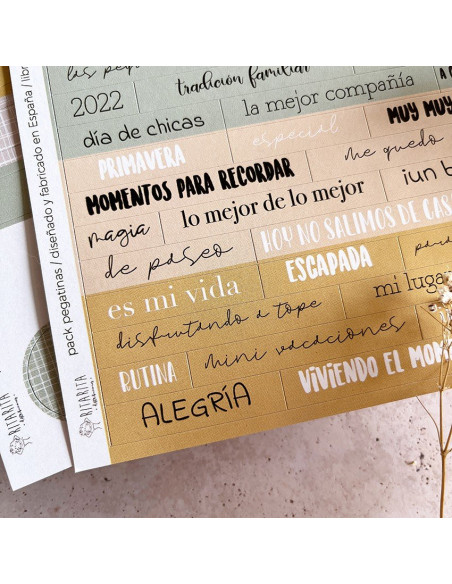 tradición familiar
2022
la mejor compañía
día de chicas
MUY MUY
PRIMAVERA
especial
MOMENTOS PARA RECORDAR
me quedo
magia
lo mejor de lo mejor
¡un b
de paseo
HOY NO SALIMOS DE CAS
es mi vida
ESCAPADA
disfrutando a tope
mi luga
RUTINA
mini vacaciones
VIVIENDO EL MOM
ALEGRÍA
pack pegatinas / diseñado y fabricado en España / libr
RITARITA
RITARITA